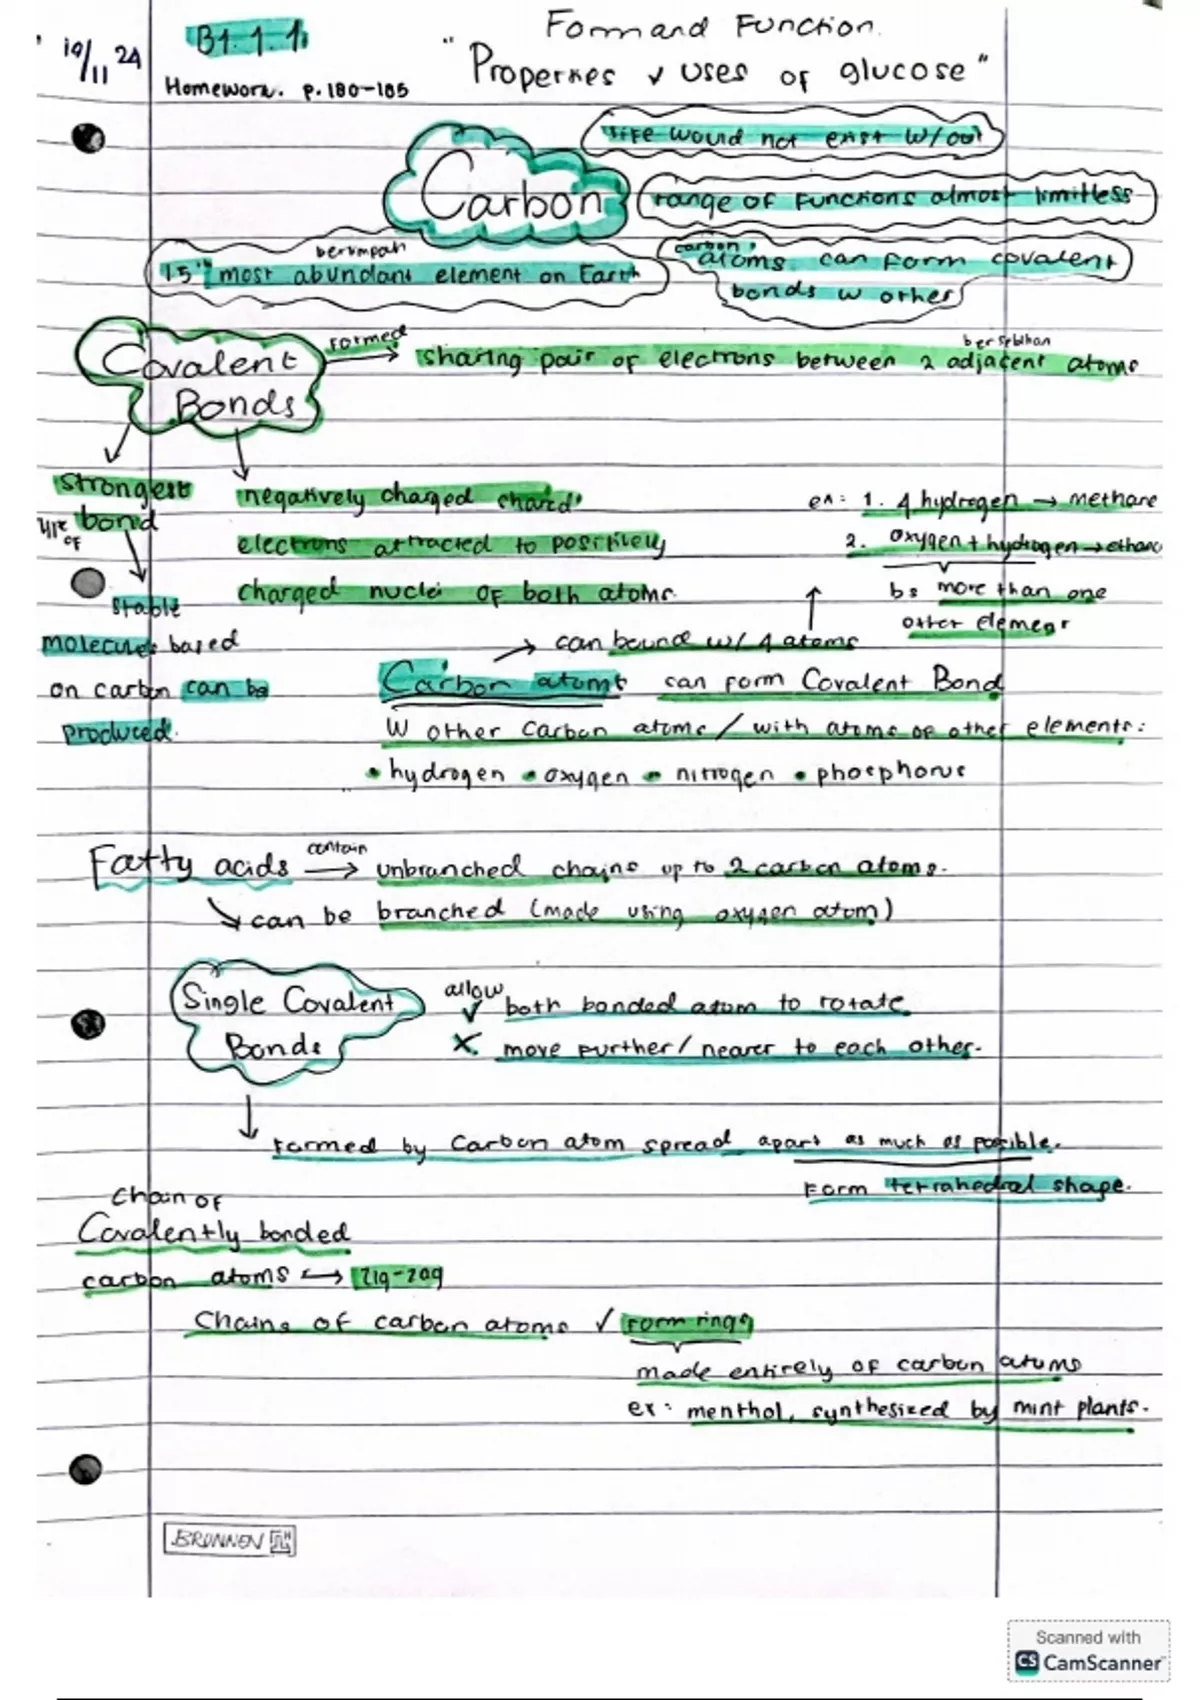 Form and Function
19/11 24
B1.1.1
"Properties & uses of glucose"
Homework. p. 180-185
life would not exist w/out
Carbon
range of functions almost limitless
berlimpah
15th most abundant element on Earth
carbon
atoms can form covalent
bonds w other
Covalent
Bonds
formed
bersebelahan
sharing pair of electrons between 2 adjacent atoms
strongest
type of bond
stable
molecules based
on carbon can be
produced.
negatively charged shared
electrons attracted to positively
charged nuclei of both atoms.
ex: 1. 4 hydrogen → methane
2. oxygen + hydrogen → ethane
bs more than one
other element
→ can bound w/ 4 atoms
Carbon atoms can form Covalent Bond
W other Carbon atoms / with atoms of other elements:
• hydrogen • oxygen • nitrogen • phosphorus
Fatty acids contain → unbranched chains up to 2 carbon atoms.
↘ can be branched (made using oxygen atom)
Single Covalent
Bonds
allow
✓ both bonded atom to rotate
✗ move further / nearer to each other.
Formed by Carbon atom spread apart as much as possible.
Form tetrahedral shape.
Chain of
Covalently bonded
carbon atoms ↔ zig-zag
Chains of carbon atoms ✓ form rings
made entirely of carbon atoms
ex: menthol, synthesized by mint plants.
BRUNNEN
Scanned with
CS CamScanner